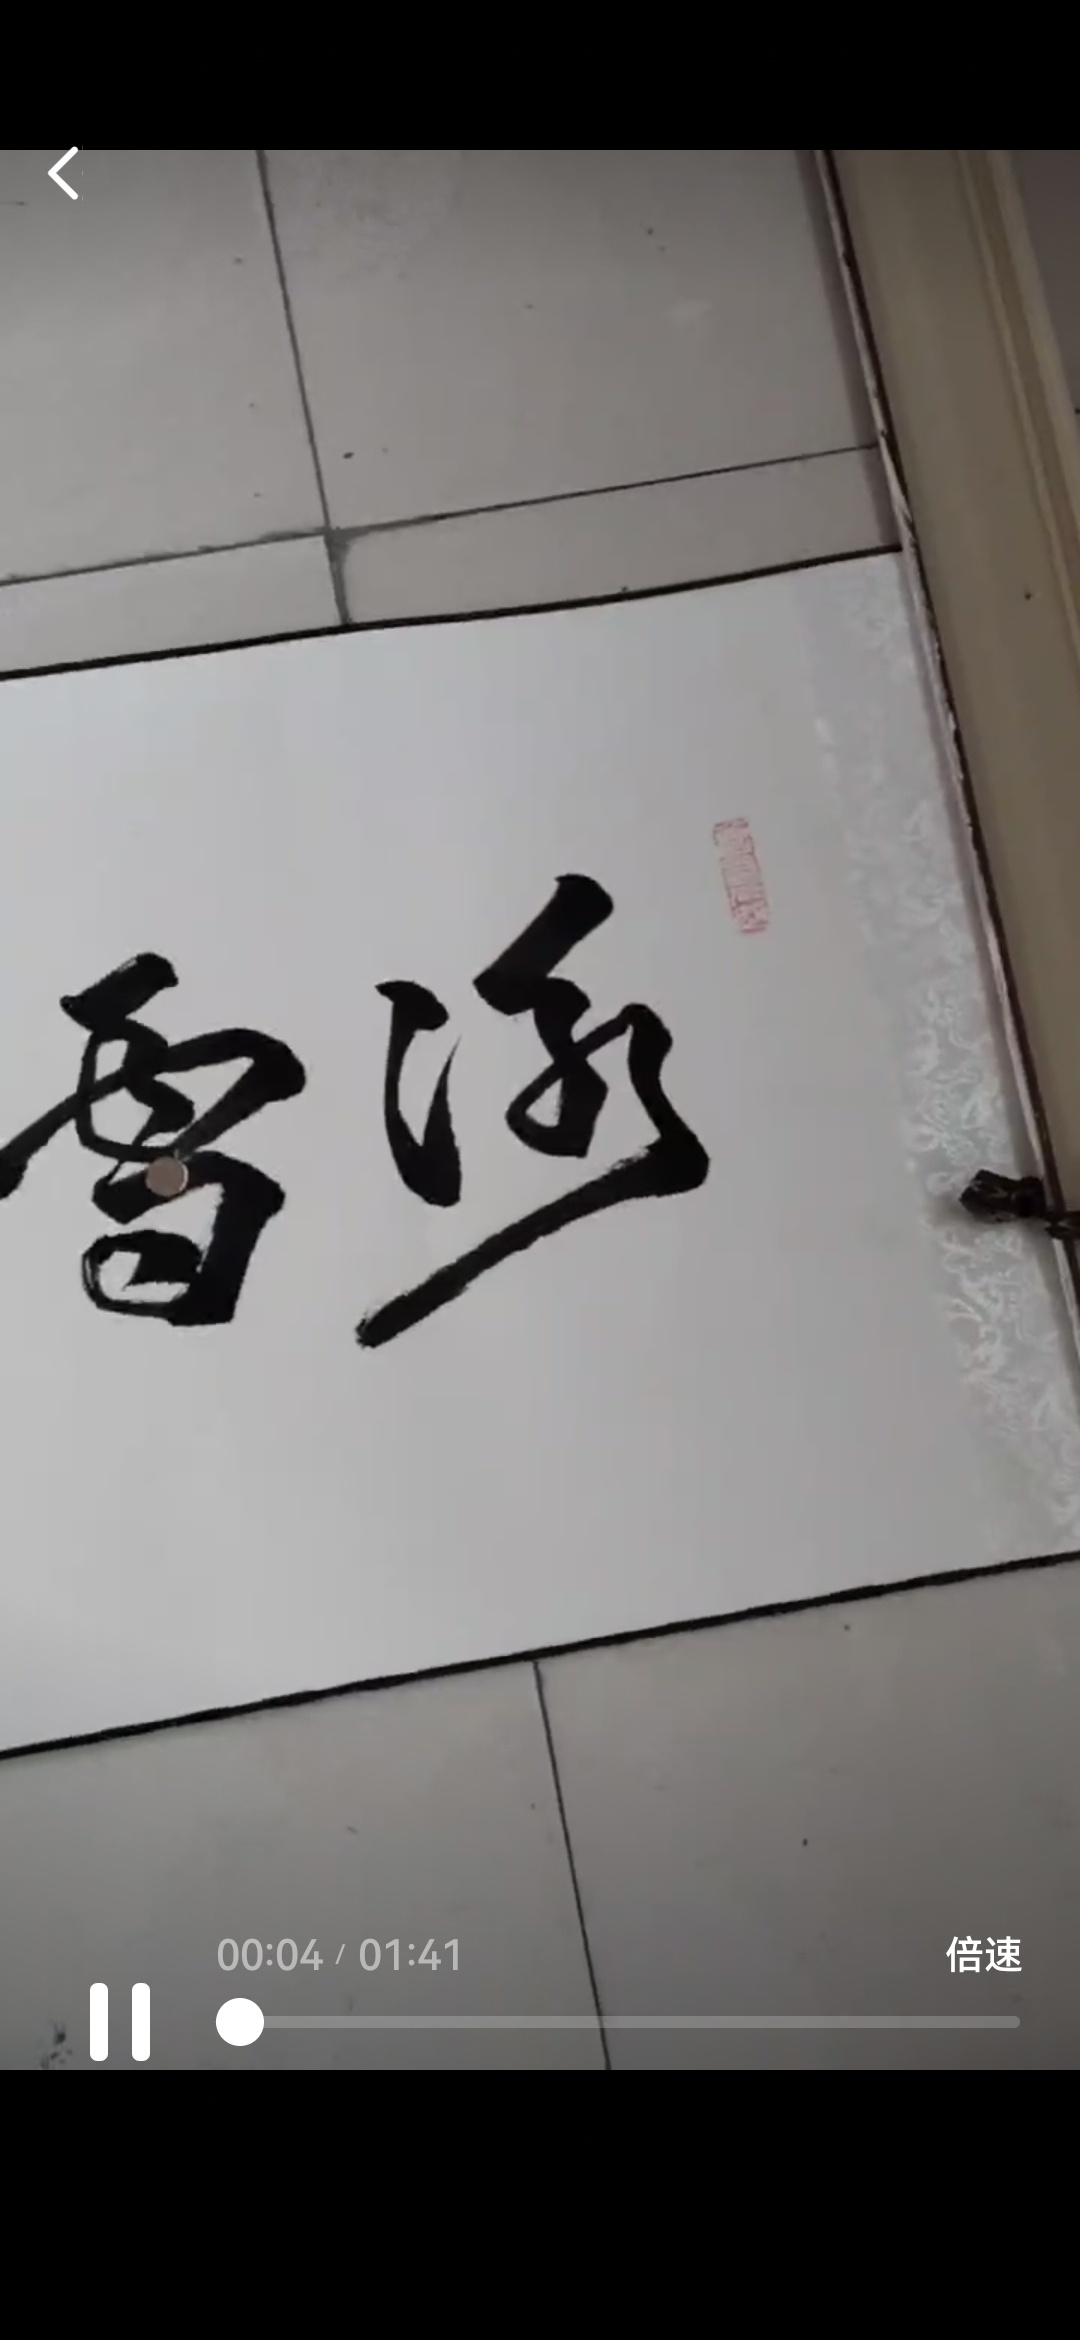 雪
00:04 / 01:41
倍速